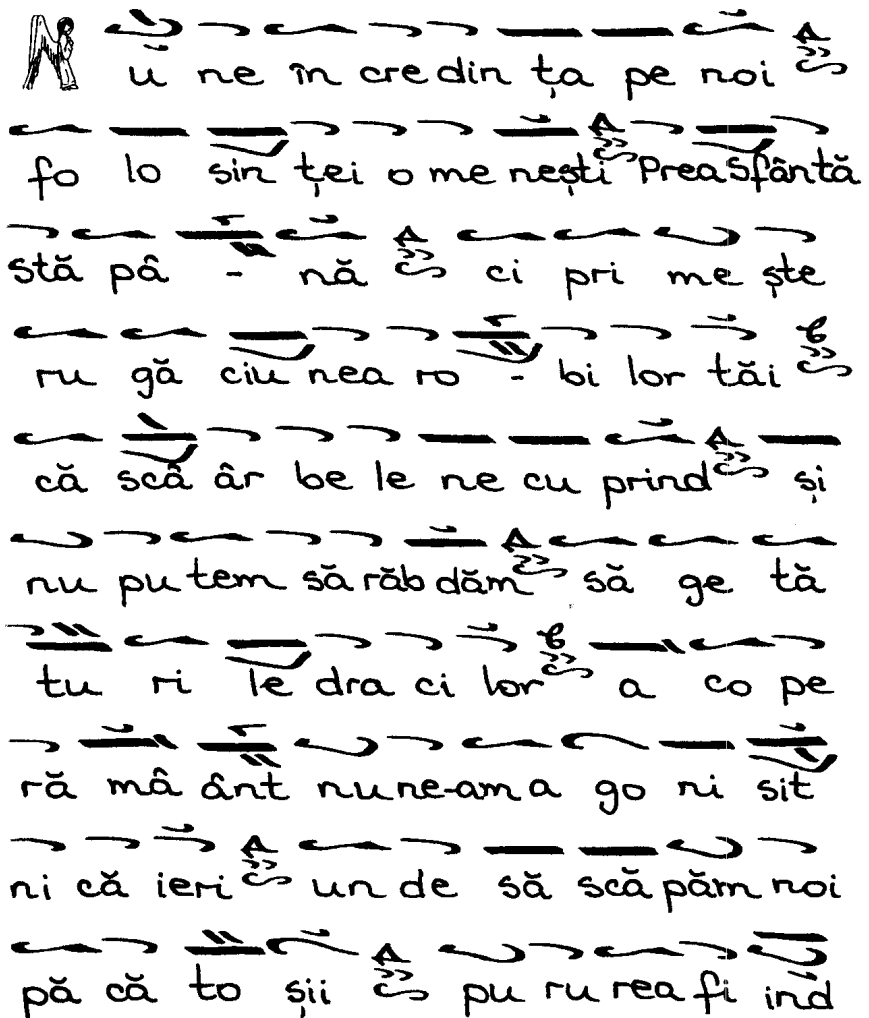 N u ne în cre din ța pe noi
fo lo sin ței o me nești Prea Sfântă
stă pâ - nă ci pri me ște
ru gă ciu nea ro - bi lor tăi
că scâ âr be le ne cu prind și
nu pu tem să răb dăm să ge tă
tu ri le dra ci lor a co pe
ră mâ ânt nu ne-am a go ni sit
ni că ieri un de să scă păm noi
pă că to șii pu ru rea fi ind